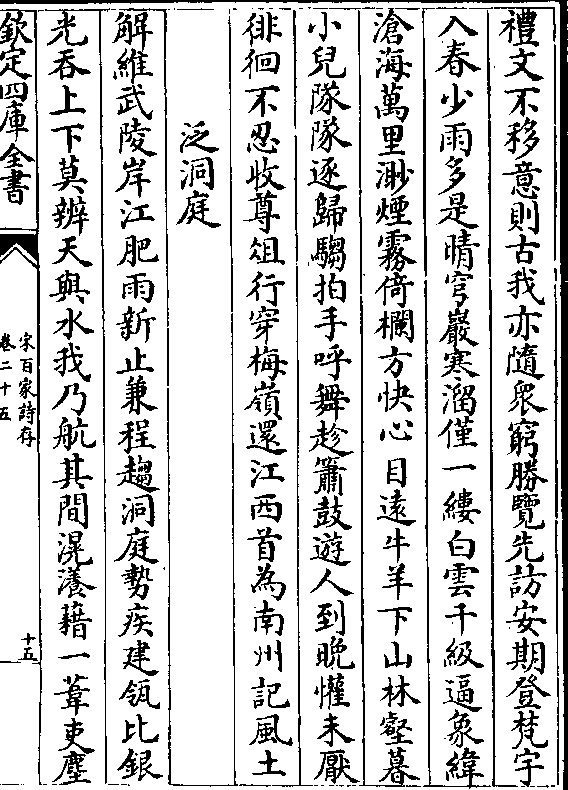 禮文不移意則古我亦隨衆窮勝覽先訪安期登梵宇
入春少雨多是晴穹巖寒溜僅一縷白雲千級逼象緯
滄海萬里渺煙霧倚欄方快心目遠牛羊下山林壑暮
小兒隊隊逐歸騶拍手呼舞趁簫鼓遊人到晚懽未厭
徘徊不忍收尊俎行穿梅嶺還江西首為南州記風土
泛洞庭
解維武陵岸江肥雨新止兼程趨洞庭勢疾建瓴比銀
光吞上下莫辨天與水我乃航其間滉瀁藉一葦吏塵
欽定四庫全書
宋百家詩存
卷二十五
十五